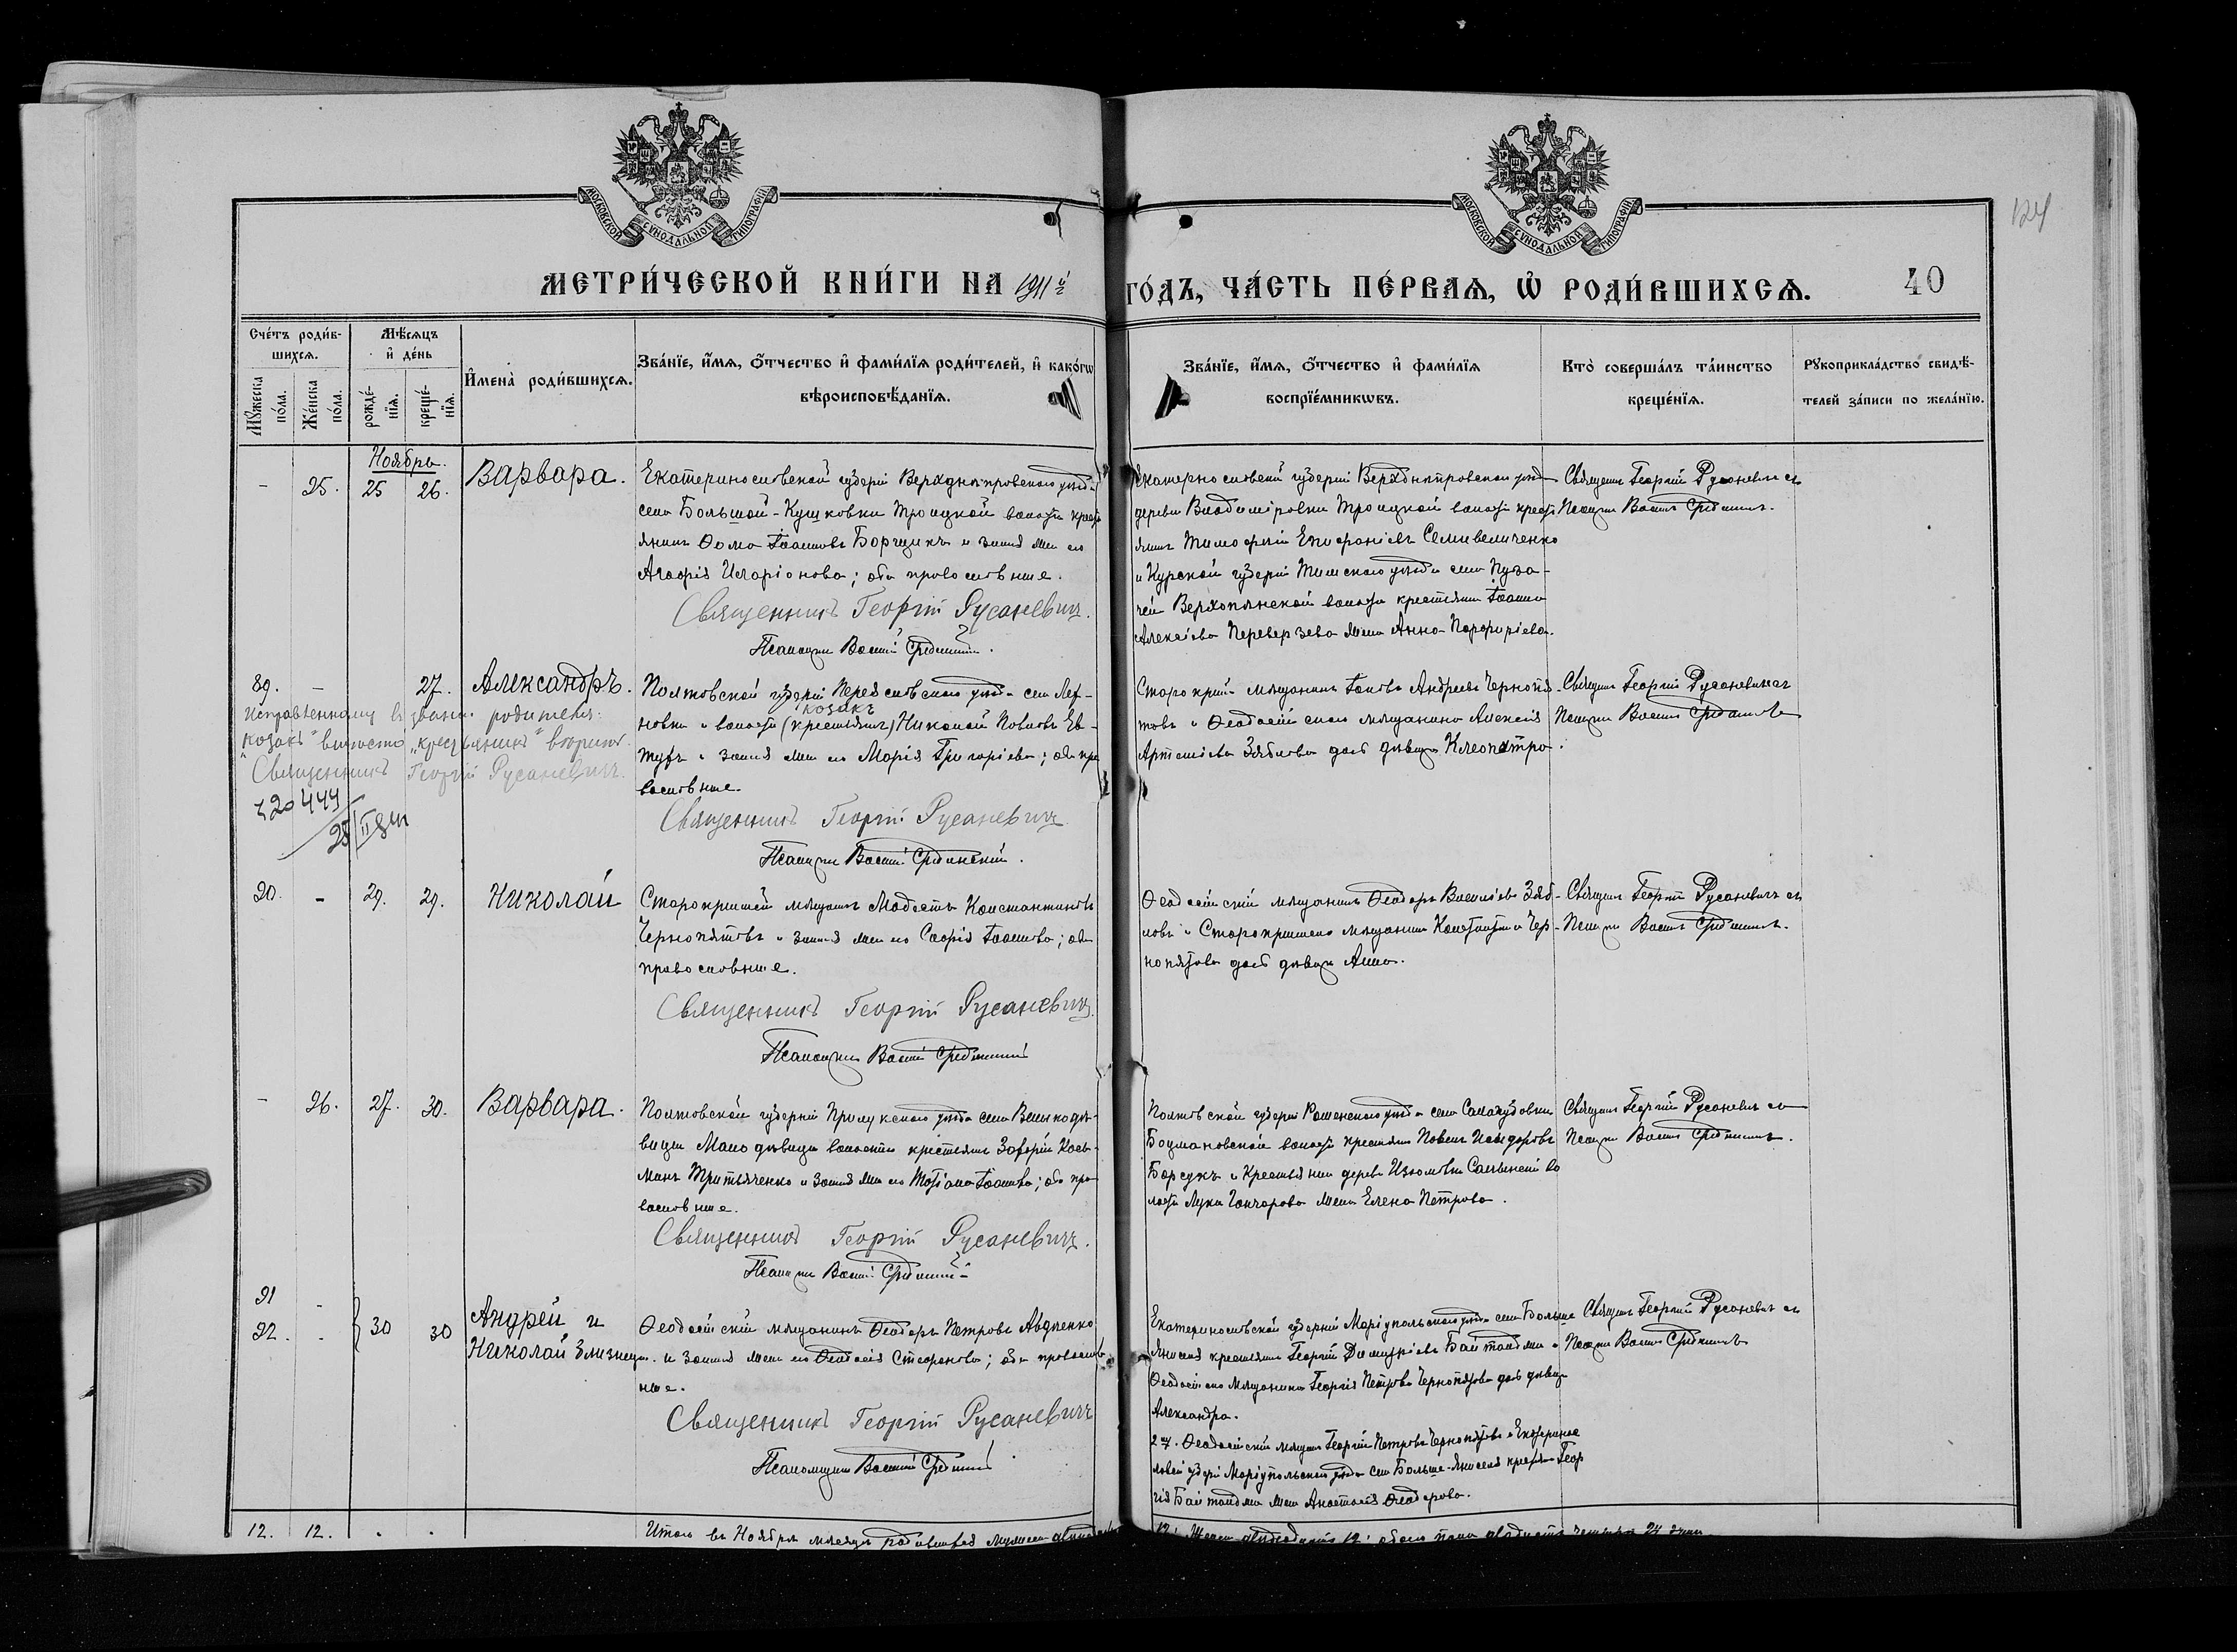 МОСКОВСКОЙ СѴНОДАЛЬНОЙ ТИПОГРАФІИ
МОСКОВСКОЙ СѴНОДАЛЬНОЙ ТИПОГРАФІИ
124
МЕТРИ́ЧЕСКОЙ КНИ́ГИ НА 1911й
ГО́ДЪ, ЧА́СТЬ ПЕ́РВАѦ, Ѡ҆ РОДИ́ВШИХСѦ.
40
Сче́тъ роди́в-
шихсѧ.
Мѣ́сѧцъ
и҆ де́нь
Мꙋ́жеска
по́ла.
Же́нска
по́ла.
рожде́-
нїѧ.
креще́-
нїѧ.
И҆мена̀ роди́вшихсѧ.
Зва́нїе, и҆́мѧ, ѻ҆́тчество и҆ фами́лїѧ роди́телей, и҆ како́гѡ
вѣроисповѣ́данїѧ.
Зва́нїе, и҆́мѧ, ѻ҆́тчество и҆ фами́лїѧ
воспрїе́мникѡвъ.
Кто̀ соверша́лъ та́инство
креще́нїѧ.
Рꙋкоприкла́дство свидѣ́-
телей за́писи по жела́нїю.
Ноябрь.
- 25. 25 26. Варвара.
Екатеринославской губерніи Верхднѣпровскаго уѣзда
села Большой-Кушковки Троицкой волости кресть
янинъ Ѳома Іоанновъ Борщикъ и законная жена его
Агафія Иларіонова; оба православные.
Священникъ Георгій Русаневичъ.
Псаломщикъ Василій
Екатеринославской губерніи Верхднѣпровскаго уѣзда
деревни Владиміровки Троицкой волости кресть
янинъ Тимоѳей Епифаніевъ Семивеличенко
и Курской губерніи Тимскаго уѣзда села Пуза-
чей волости крестьянина Іоанна
Алексіева Переверзева жена Анна Порфиріева.
Священникъ Георгій Русаневичъ съ
Псаломщ. Василіемъ
89. - 27. Александръ.
Исправленному въ званіи родителя:
"козакъ" вмѣсто "крестьянинъ" вѣрно
Священникъ Георгій Русаневичъ.
Полтавской губерніи Переяславскаго уѣзда села
козакъ
новки и волости (крестьянинъ) Николай Павловъ Ев-
тухъ и законная жена его Марія Григоріева; оба пра
вославные.
Священникъ Георгій Русаневичъ
Псаломщикъ Василій
Старокрым. мѣщанинъ Іаковъ Андреевъ Чернопя-
товъ и Ѳеодосійскаго мѣщанина Алексія
Артеміева Зяблова дочь дѣвица Клеопатра.
Священникъ Георгій Русаневичъ съ
Псаломщ. Василіемъ
90. - 29. 29. Николай
Старокрымскій мѣщанинъ Модестъ Константиновъ
Чернопятовъ и законная жена его Софія Іоаннова; оба
православные.
Священникъ Георгій Русаневичъ.
Псаломщикъ Василій
Ѳеодосійскій мѣщанинъ Ѳеодоръ Василіевъ Зяб-
ловъ и Старокрымскаго мѣщанина Константина Чер-
нопятова дочь дѣвица Анна.
Священникъ Георгій Русаневичъ съ
Псаломщ. Василіемъ
- 26. 27. 30. Варвара.
Полтавской губерніи Прилукскаго уѣзда села Великодѣ-
вицы Малодѣвицкой волости крестьянинъ Захарій Кось-
минъ Третьяченко и законная жена его Татіана Іоаннова; оба пра
вославные.
Священникъ Георгій Русаневичъ.
Псаломщикъ Василій
Полтавской губерніи Роменскаго уѣзда села
волости крестьянинъ Павелъ Исидоровъ
Борсукъ и крестьянина деревни Изюмовки Салынской во
лости Луки Гончарова жена Елена Петрова.
Священникъ Георгій Русаневичъ съ
Псаломщ. Василіемъ
91 -
92. - 30 30 Андрей и
Николай близнецы.
Ѳеодосійскій мѣщанинъ Ѳеодоръ Петровъ Авдѣенко
и законная жена его Ѳеодосія Стефанова; оба православ
ные.
Священникъ Георгій Русаневичъ
Псаломщикъ Василій
Екатеринославской губерніи Маріупольскаго уѣзда села Больше
Янисоля крестьянинъ Георгій Димитріевъ и
Ѳеодосійскаго мѣщанина Георгія Петрова Чернопятова дочь дѣвица
Александра.
2го. Ѳеодосійскій мѣщанинъ Георгій Петровъ Чернопятовъ и Екатеринос
лавской губерніи Маріупольскаго уѣзда села Больше-Янисоля крестьянина Геор
гія жена Анастасія Ѳеодорова.
Священникъ Георгій Русаневичъ съ
Псаломщ. Василіемъ
12. 12. . .
Итого въ Ноябрѣ мѣсяцѣ родившихся мужескаго
12; женска двѣнадцать 12; обоего пола двадцать четыре 24 души